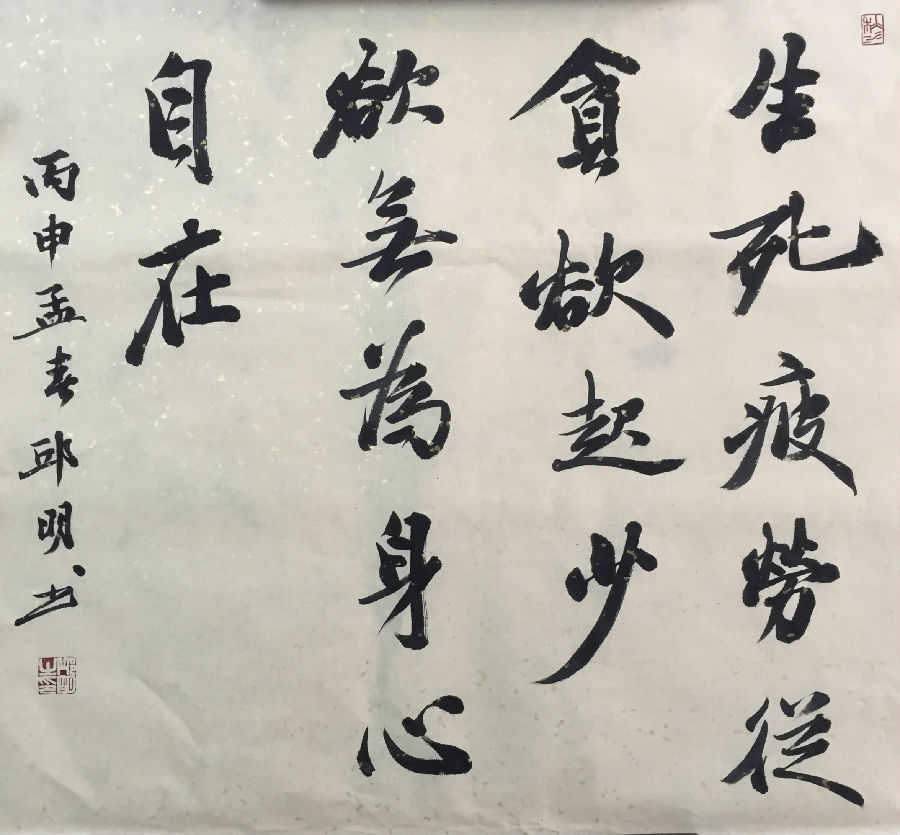 生死疲勞從
貪欲起少
欲無為身心
自在
丙申孟春邱明书